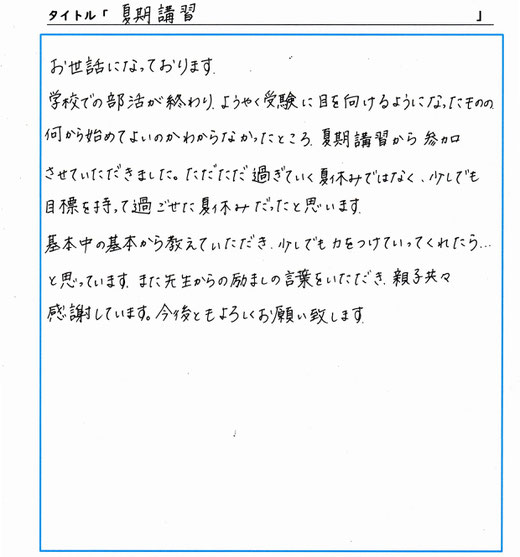 タイトル「 夏期講習 」
お世話になっております。
学校での部活が終わり、ようやく受験に目を向けるようになったものの
何から始めてよいのかわからなかったところ、夏期講習から参加
させていただきました。ただただ過ぎていく夏休みではなく、少しでも
目標を持って過ごせた夏休みだったと思います。
基本中の基本から教えていただき、少しでも力をつけていってくれたら…
と思っています。また先生からの励ましの言葉をいただき、親子共々
感謝しています。今後ともよろしくお願い致します。